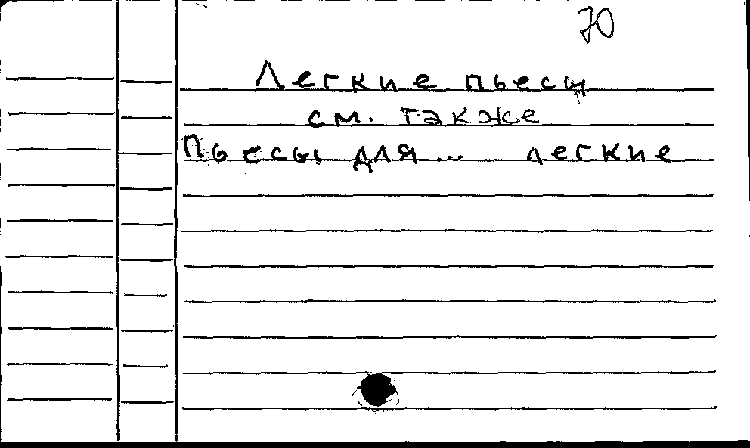 70
Легкие пьесы
см. также
Пьесы для... легкие